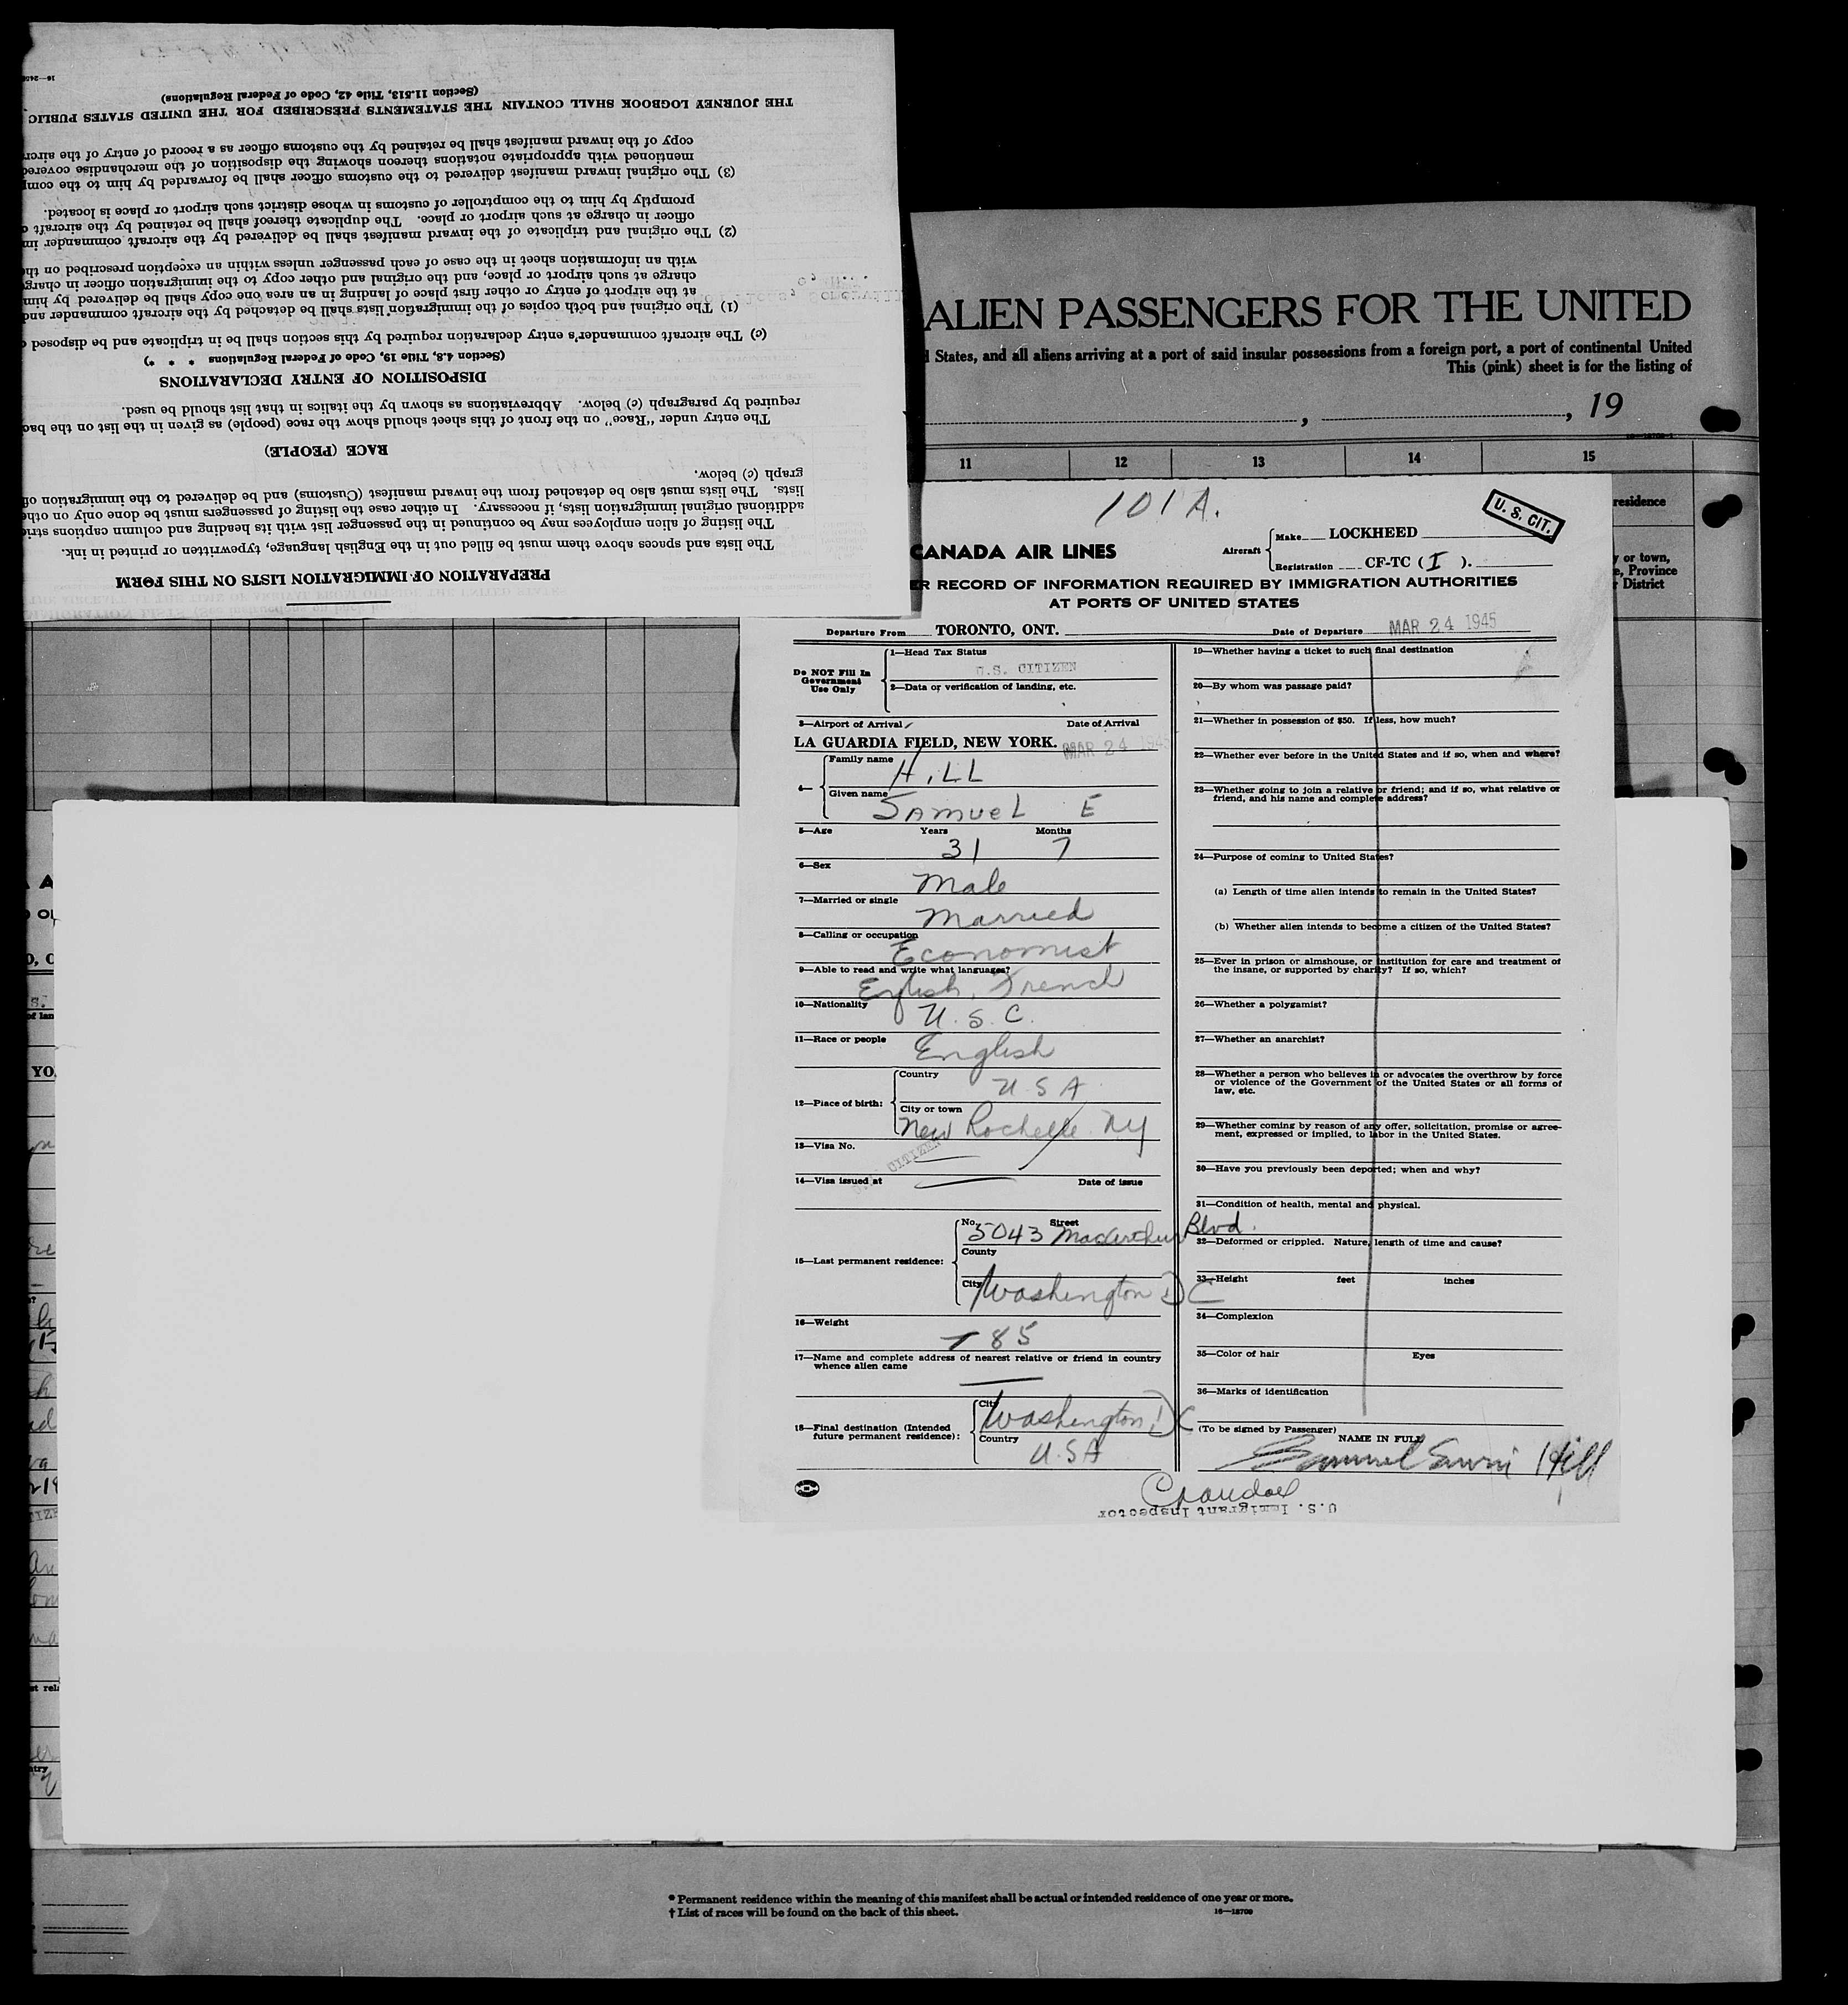 16—2458
(Section 11.513, Title 42, Code of Federal Regulations)
THE JOURNEY LOGBOOK SHALL CONTAIN THE STATEMENTS PRESCRIBED FOR THE UNITED STATES PUBLIC
PREPARATION OF IMMIGRATION LISTS ON THIS FORM
The lists and spaces above them must be filled out in the English language, typewritten or printed in ink.
The listing of alien employees may be continued in the passenger list with its heading and column captions
additional original immigration lists, if necessary. In either case the listing of passengers must be done only on
lists. The lists must also be detached from the inward manifest (Customs) and be delivered to the immigration
graph (c) below.
RACE (PEOPLE)
The entry under "Race" on the front of this sheet should show the race (people) as given in the list on the
required by paragraph (c) below. Abbreviations as shown by the italics in that list should be used.
DISPOSITION OF ENTRY DECLARATIONS
(Section 4.8, Title 19, Code of Federal Regulations * * *)
(c) The aircraft commander's entry declaration required by this section shall be in triplicate and be disposed
(1) The original and both copies of the immigration lists shall be detached by the aircraft commander and
at the airport of entry or other first place of landing in an area one copy shall be delivered by him
charge at such airport or place, and the original and other copy to the immigration officer in
with an information sheet in the case of each passenger unless within an exception prescribed on
(2) The original and triplicate of the inward manifest shall be delivered by the aircraft commander
officer in charge at such airport or place. The duplicate thereof shall be retained by the aircraft
promptly by him to the comptroller of customs in whose district such airport or place is located.
(3) The original inward manifest delivered to the customs officer shall be forwarded by him to the
mentioned with appropriate notations thereon showing the disposition of the merchandise
copy of the inward manifest shall be retained by the customs officer as a record of entry of the
ALIEN PASSENGERS FOR THE UNITED
States, and all aliens arriving at a port of said insular possessions from a foreign port, a port of continental United
This (pink) sheet is for the listing of
, , 19
11 12 13 14 15
residence
or town,
Province
District
101A.
U. S. CIT.
CANADA AIR LINES
Aircraft Make LOCKHEED
Registration CF-TC (I).
RECORD OF INFORMATION REQUIRED BY IMMIGRATION AUTHORITIES
AT PORTS OF UNITED STATES
Departure From TORONTO, ONT. Date of Departure MAR 24 1945
Do NOT Fill In Government Use Only
1—Head Tax Status
U.S. CITIZEN
2—Data or verification of landing, etc.
3—Airport of Arrival Date of Arrival
LA GUARDIA FIELD, NEW YORK. MAR 24 1945
4— Family name HILL
Given name Samuel E
5—Age Years 31 Months 7
6—Sex Male
7—Married or single Married
8—Calling or occupation Economist
9—Able to read and write what languages? English, French
10—Nationality U.S.C.
11—Race or people English
12—Place of birth: Country USA
City or town New Rochelle NY
13—Visa No.
CITIZEN
14—Visa issued at Date of issue
15—Last permanent residence: No. 5043 Street MacArthur Blvd.
County
City Washington DC
16—Weight 185
17—Name and complete address of nearest relative or friend in country whence alien came
18—Final destination (Intended future permanent residence): City Washington DC
Country U.S.A
19—Whether having a ticket to such final destination
20—By whom was passage paid?
21—Whether in possession of $50. If less, how much?
22—Whether ever before in the United States and if so, when and where?
23—Whether going to join a relative or friend; and if so, what relative or
friend, and his name and complete address?
24—Purpose of coming to United States?
(a) Length of time alien intends to remain in the United States?
(b) Whether alien intends to become a citizen of the United States?
25—Ever in prison or almshouse, or institution for care and treatment of
the insane, or supported by charity? If so, which?
26—Whether a polygamist?
27—Whether an anarchist?
28—Whether a person who believes in or advocates the overthrow by force
or violence of the Government of the United States or all forms of
law, etc.
29—Whether coming by reason of any offer, solicitation, promise or agree-
ment, expressed or implied, to labor in the United States.
30—Have you previously been deported; when and why?
31—Condition of health, mental and physical.
32—Deformed or crippled. Nature, length of time and cause?
33—Height feet inches
34—Complexion
35—Color of hair Eyes
36—Marks of identification
(To be signed by Passenger)
NAME IN FULL
Samuel Hill
U.S. Immigrant Inspector
* Permanent residence within the meaning of this manifest shall be actual or intended residence of one year or more.
† List of races will be found on the back of this sheet.
16—18709